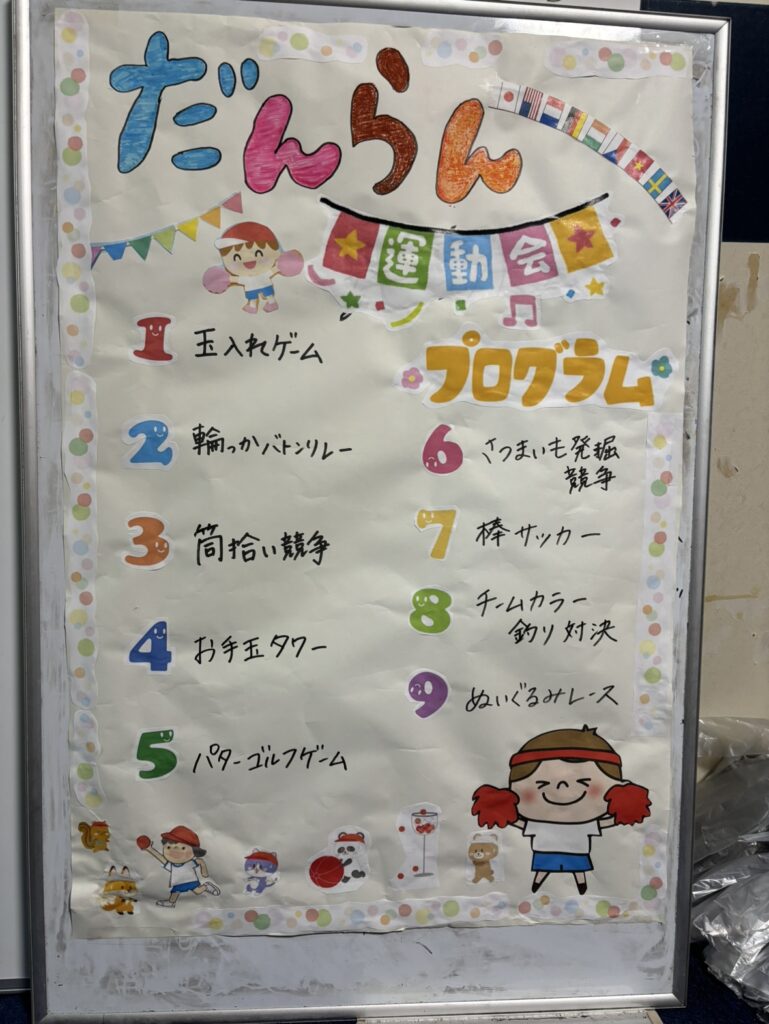 だんらん
運動会
プログラム
1 玉入れゲーム
2 輪っかバトンリレー
3 筒拾い競争
4 お手玉タワー
5 パターゴルフゲーム
6 さつまいも発掘
競争
7 棒サッカー
8 チームカラー
釣り対決
9 ぬいぐるみレース